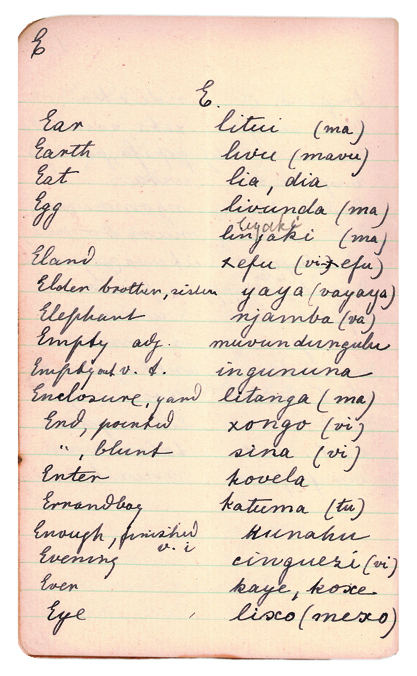 E
E.
Ear litui (ma)
Earth livu (mavu)
Eat lia, dia
Egg livunda (ma)
liyaki
linjaki (ma)
Eland xefu (vixefu)
Elder brother, sister yaya (vayaya)
Elephant njamba (va)
Empty adj. muvundungulu
Empty out v. t. ingununa
Enclosure, yard litanga (ma)
End, pointed xongo (vi)
", blunt sina (vi)
Enter kovela
Errandboy katuma (tu)
Enough, finished kunahu
v. i
Evening cinguezi (vi)
Ever kaye, koxe
Eye lixo (mexo)